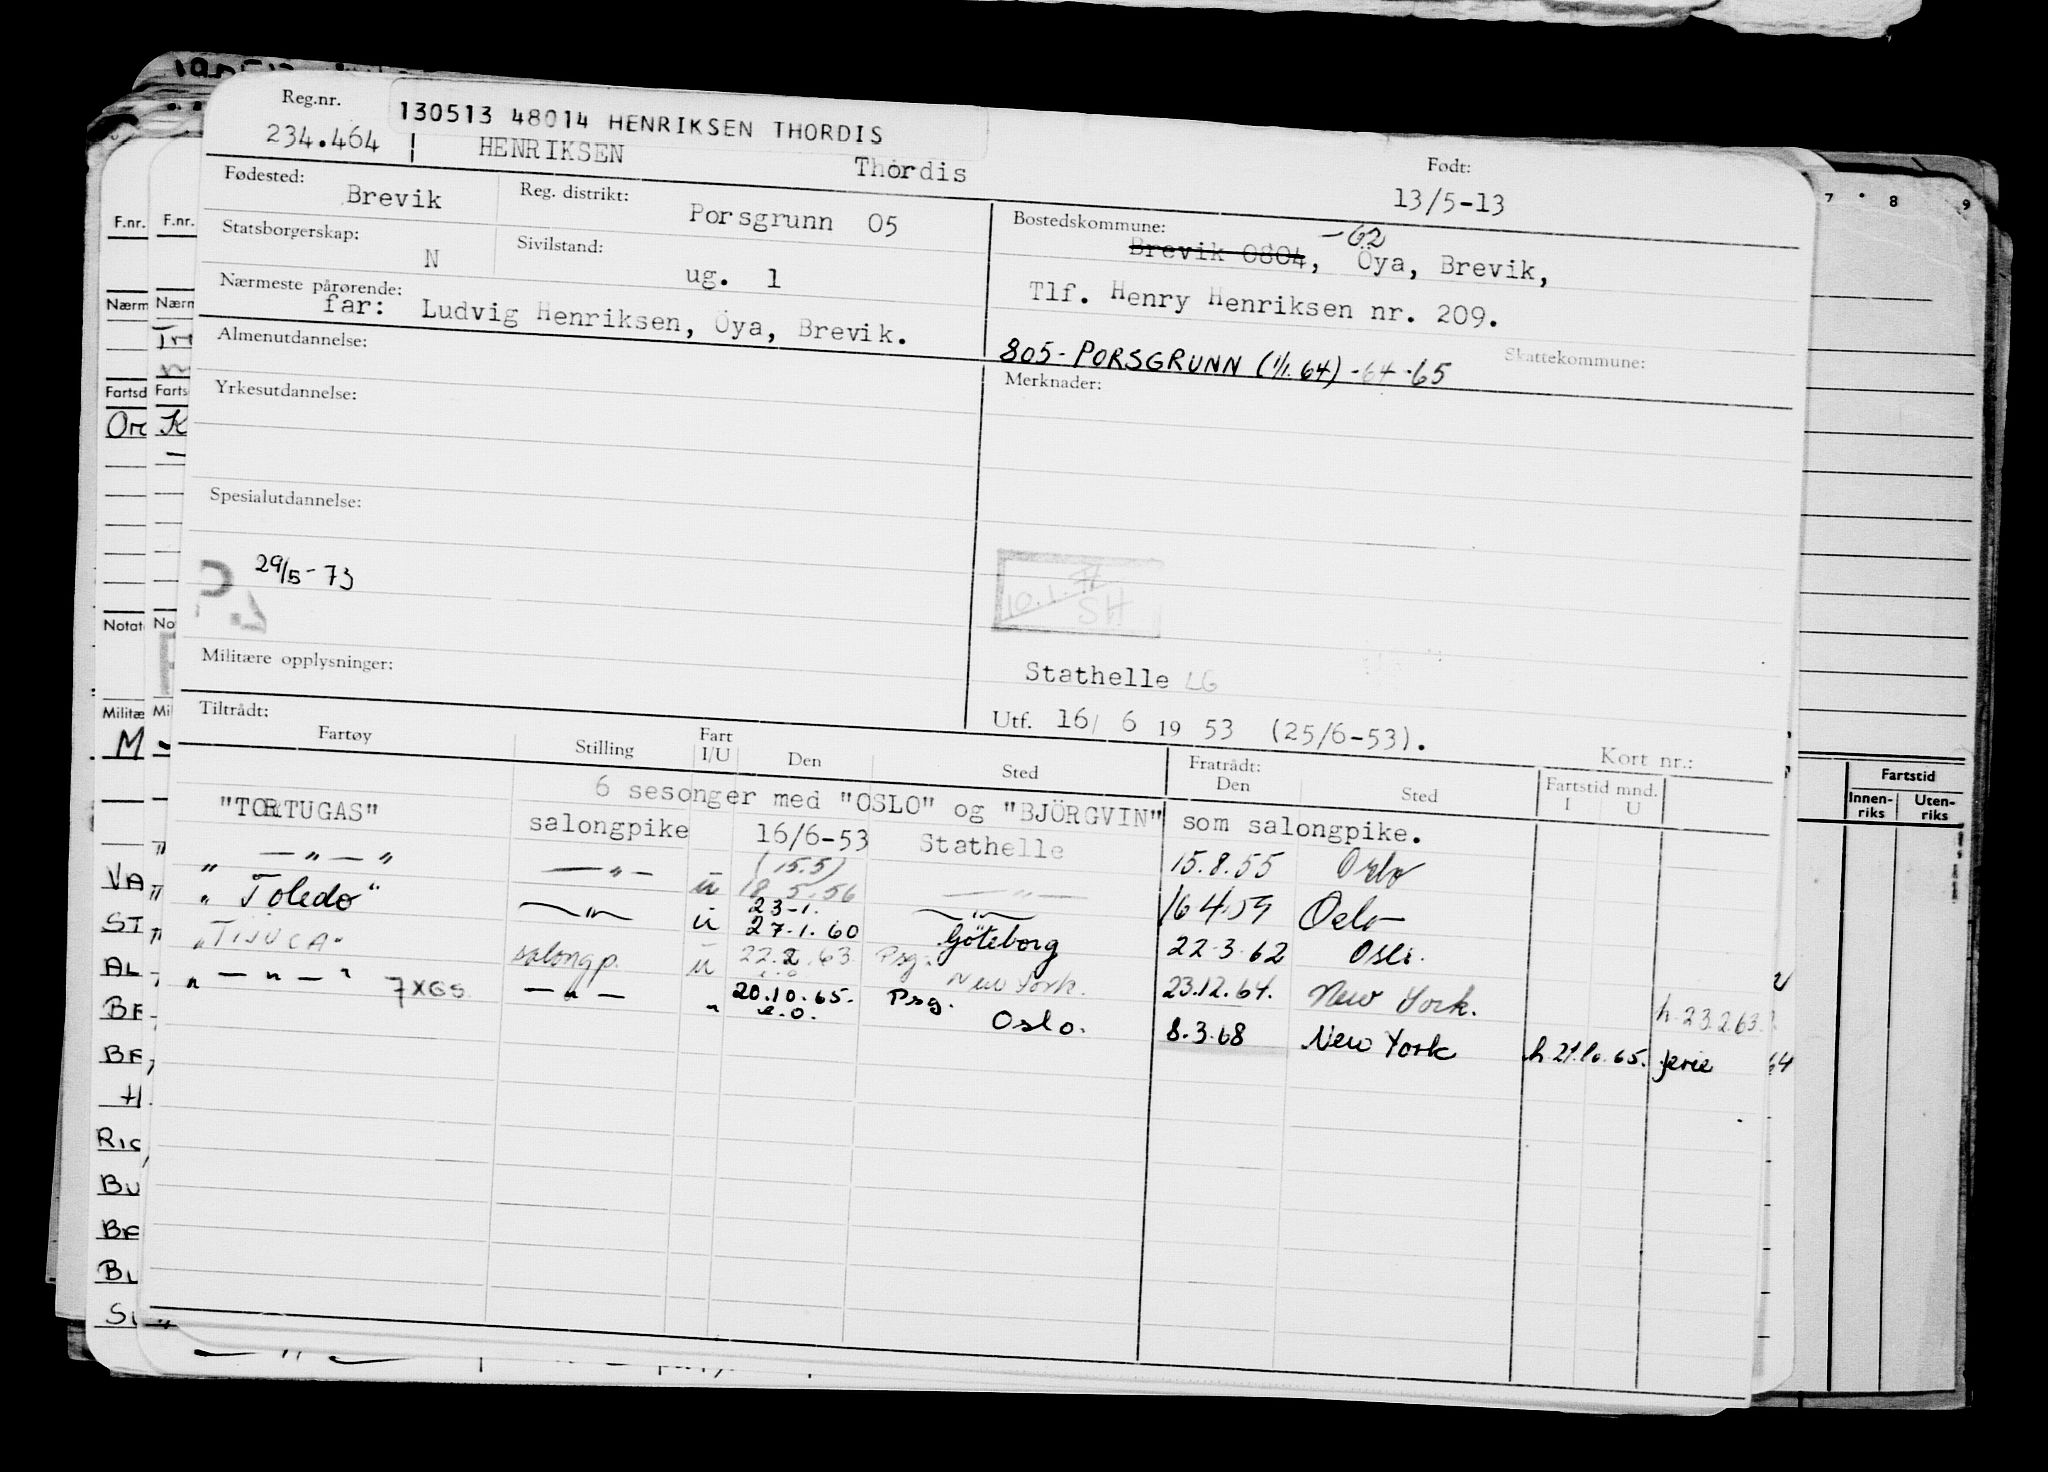 Reg.nr.
130513 48014 HENRIKSEN THORDIS
234.464 HENRIKSEN Thordis
Født:
13/5-13
Fødested: Brevik
Reg. distrikt: Porsgrunn 05
Bostedskommune: -62
Brevik 0804, Öya, Brevik,
Statsborgerskap: N
Sivilstand: ug. 1
Tlf. Henry Henriksen nr. 209.
Nærmeste pårørende:
far: Ludvig Henriksen, Öya, Brevik.
805-PORSGRUNN (1/1.64)-64-65
Skattekommune:
Almenutdannelse:
Merknader:
Yrkesutdannelse:
Spesialutdannelse:
29/5-73
10.1.
SH
Militære opplysninger:
Stathelle LG
Utf. 16/ 6 19 53 (25/6-53).
Kort nr.:
Tiltrådt:
Fartøy Stilling Fart I/U Den Sted
Fratrådt: Den Sted Fartstid mnd. I U
6 sesonger med "OSLO" og "BJÖRGVIN" som salongpike.
"TORTUGAS" salongpike 16/6-53 Stathelle 15.8.55 Oslo
" — " — " — " — u (15.5) 18.5.56 — " — 16 4.59 Oslo
" Toledo " — " — u 23-1. 27.1.60 — " — Göteborg 22.3.62 Oslo.
"TIJUCA" salongp. u 22.2.63 Psg. New York. 23.12.64. New York. h.23.2.63.
" — " — " 7XGS — " — " 20.10.65. e.o. Psg. Oslo. 8.3.68 New York h 21.10.65. ferie
F.nr.
F.nr.
Nærm
Nærm
Fartsd
Fartsd
Or
K
Notat
No
Militæ
Mil
M
VA
ST
AL
BE
BE
H
RIS
BU
BE
BL
ST
7 8 9
64
Fartstid
Innen-riks Uten-riks